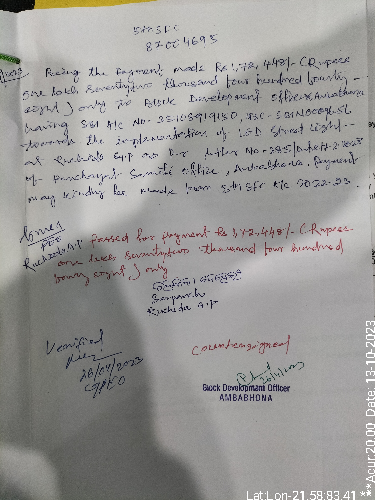 5th SFC
87004693
Being the Payment made Rs 1,72,448/- (Rupees
one lakh seventytwo thousand four hundred fourty
eight) only to Block Development Officer, Ambabhona
having SBI A/C No-
towards the implementation of LED Street Light
at Ruchida G.P as per letter No-285
of Panchayat Samiti Office, Ambabhona. Payment
may kindly be made from 5th SFC A/c 2022-23.
PEO
Passed for payment Rs 1,72,448/- (Rupees
one lakh seventytwo thousand four hundred
fourty eight) only
Sarpanch
Ruchida G.P
Verified
Countersigned
26/04/2023
GPEO
Block Development Officer
AMBABHONA
Lat:Lon-21.58:83.41 ***Acur:20.00 Date:13-10-2023